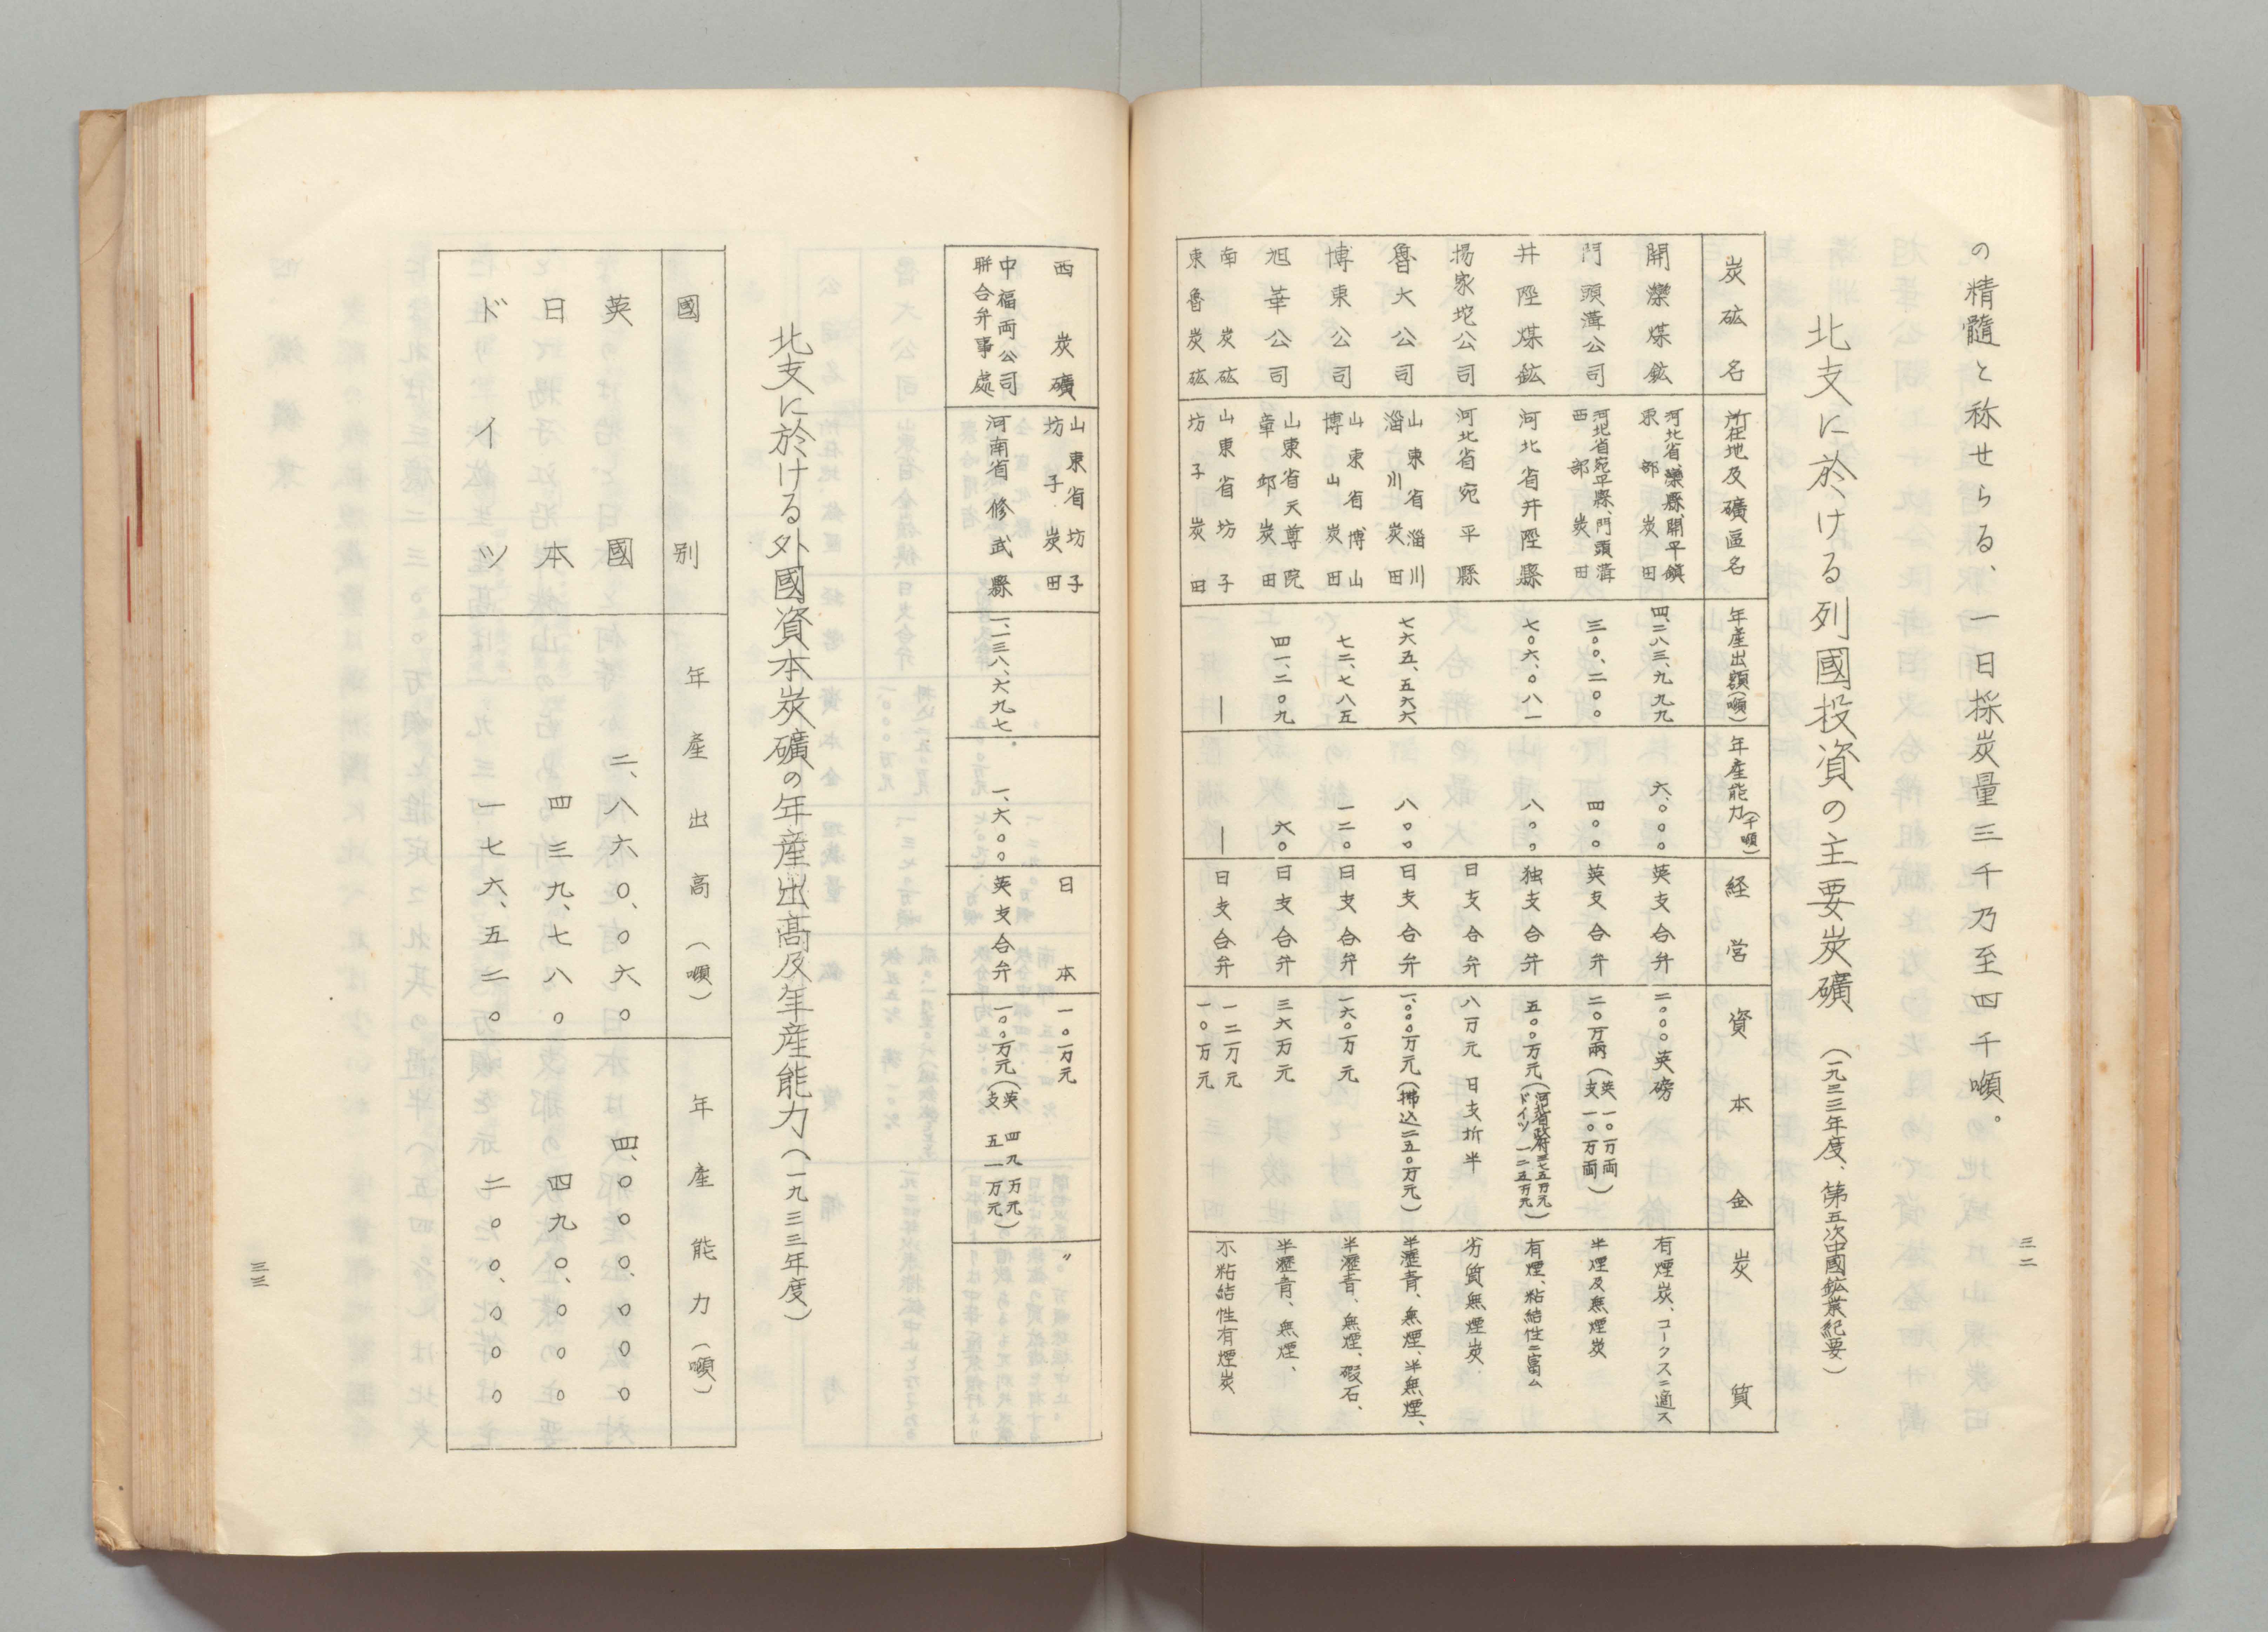 の精髓と称せらる、一日採炭量三千乃至四千噸。
北支に於ける列國投資の主要炭礦（一九三三年度、第五次中國鉱業紀要）
炭砿名 所在地及礦區名 年産出額（噸） 年産能力（千噸） 経営 資本金 炭質
開灤煤鉱 河北省、灤縣、開平鎮 東部炭田 四、二八三、九九九 六、〇〇〇 英支合弁 二〇〇〇英磅 有煙炭、コークスニ適ス
門頭溝公司 河北省宛平縣、門頭溝 西部炭田 三〇〇、二〇〇 四〇〇 英支合弁 二〇万兩（英一〇万両 支一〇万両） 半煙及無煙炭
井陘煤鉱 河北省井陘縣 七〇六、〇八一 八〇〇 独支合弁 五〇〇万元（河北省政府三七五万元 ドイツ一二五万元） 有煙、粘結性ニ富ム
揚家坨公司 河北省宛平縣 日支合弁 八万元 日支折半 劣質無煙炭
魯大公司 山東省淄川 淄川炭田 七六五、五六六 八〇〇 日支合弁 一、〇〇〇万元（拂込二五〇万元） 半瀝青、無煙、半無煙、
博東公司 山東省博山 博山炭田 七二、七八五 一二〇 日支合弁 一六〇万元 半瀝青、無煙、煆石、
旭華公司 山東省天尊院 章邱炭田 四一、二〇九 六〇 日支合弁 三六万元 半瀝青、無煙、
南炭砿 山東省坊子 一二万元
東魯炭砿 坊子炭田 ― ― 日支合弁 一〇万元 不粘結性有煙炭
三二
西炭礦 山東省坊子 坊子炭田 日本 一〇万元 〃
中福両公司 聯合弁事處 河南省修武縣 一、一三八、六九七 一、六〇〇 英支合弁 一〇〇万元（英四九万元 支五一万元）
北支に於ける外國資本炭礦の年産出高及年産能力（一九三三年度）
國別 年産出高（噸） 年産能力（噸）
英國 二、八六〇、〇六〇 四、〇〇〇、〇〇〇
日本 四三九、七八〇 四九〇、〇〇〇
ドイツ 一七六、五二〇 二〇〇、〇〇〇
三三